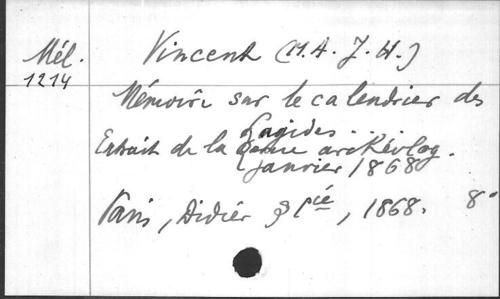 Mél.
1214
Vincent (M. A. J. H.)
Mémoire sur le calendrier des
Lagides...
Extrait de la Revue archéolog.
janvier 1868
Paris, Didier & Cie, 1868. 8°